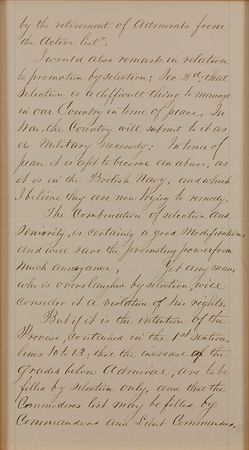 by the retirement of Admirals from
the Active list".
I would also remark in relation
to promotion by selection; Sec 2d that
Selection is a difficult thing to manage
in our Country in time of peace. In
War, the Country will submit to it as
a Military necessity: In time of
peace it is apt to become an abuse, as
it is in the British Navy, and which
I believe they are now trying to remedy.
The Combination of selection and
Seniority, is certainly a good Modification,
and will save the promoting power from
much annoyance. Yet any man,
who is overslaughed by selection, will
consider it a violation of his rights.
But if it is the intention of the
Proviso, contained in the 1st Section,
lines 10 to 13, that the increase of the
grades below Admiral, are to be
filled by selection only, and that the
Commodores list may be filled by
Commanders and Lieut Commanders,